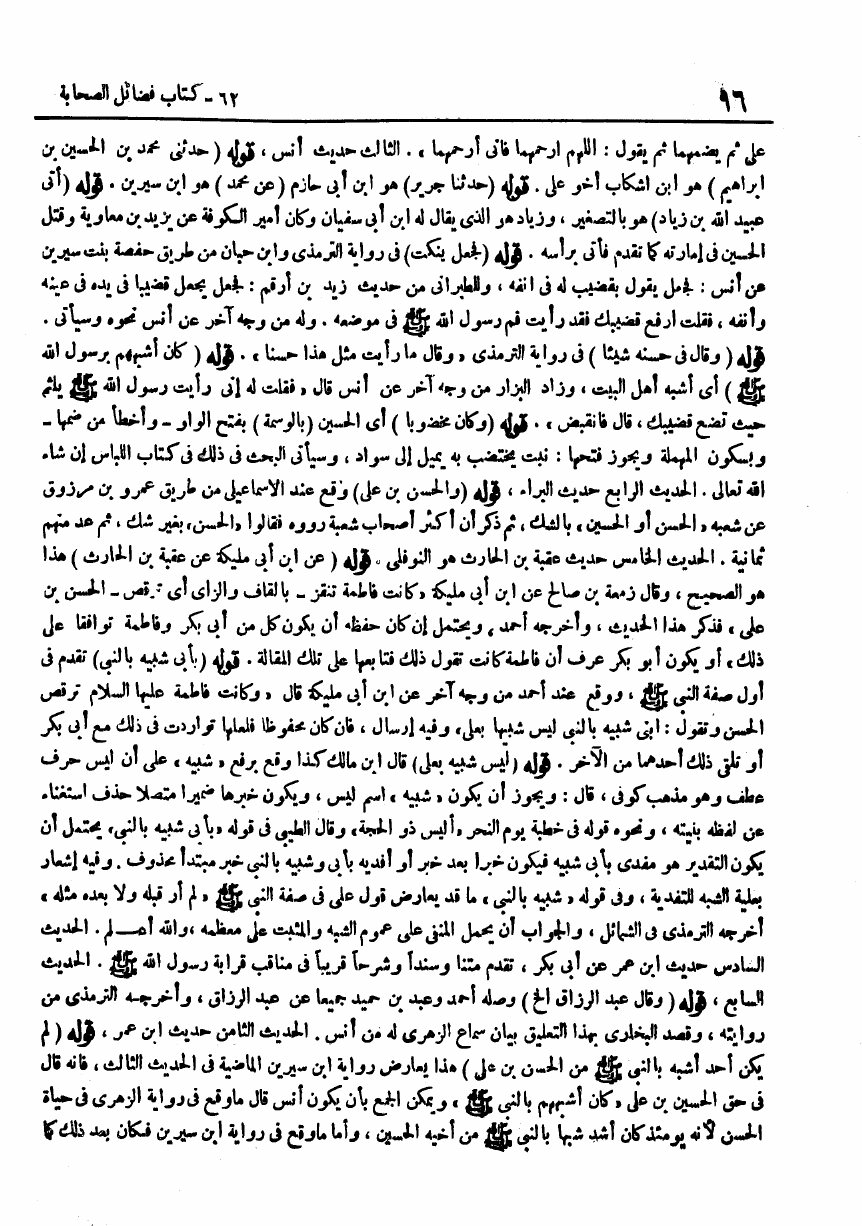 ٩٦ ٦٢ - كتاب فضائل الصحابة
على ثم يضمهما ثم يقول : اللهم ارحمهما فانى أرحمهما » . الثالث حديث أنس ، قوله ( حدثنى محمد بن الحسين بن
ابراهيم ) هو ابن اشكاب أخو على . قوله (حدثنا جرير) هو ابن أبى حازم (عن محمد) هو ابن سيرين . قوله (أتى
عبيد الله بن زياد) هو بالتصغير ، وزياد هو الذى يقال له ابن أبى سفيان وكان أمير الكوفة عن يزيد بن معاوية وقتل
الحسين فى إمارته كما تقدم فأتى برأسه . قوله (فجعل ينكت) فى رواية الترمذى وابن حبان من طريق حفصة بنت سيرين
عن أنس : فجعل يقول بقضيب له فى انفه ، وللطبرانى من حديث زيد بن أرقم : فجعل يجعل قضيبا فى يده فى عينه
وأنفه ، فقلت ارفع قضيبك فقد رأيت فم رسول الله ﷺ فى موضعه . وله من وجه آخر عن أنس نحوه وسيأتى .
قوله ( وقال فى حسنه شيئا ) فى رواية الترمذى « وقال ما رأيت مثل هذا حسنا » . قوله ( كان أشبههم برسول الله
ﷺ ) أى أشبه أهل البيت ، وزاد البزار من وجه آخر عن أنس قال « فقلت له إنى رأيت رسول الله ﷺ يلثم
حيث تضع قضيبك ، قال فانقبض » . قوله (وكان مخضوبا ) أى الحسين (بالوسمة ) بفتح الواو - وأخطأ من ضمها -
وبسكون المهملة ويجوز فتحها : نبت يختضب به يميل إلى سواد ، وسيأتى البحث فى ذلك فى كتاب اللباس إن شاء
الله تعالى . الحديث الرابع حديث البراء ، قوله (والحسن بن على) وقع عند الاسماعيلى من طريق عمرو بن مرزوق
عن شعبه « الحسن أو الحسين » بالشك ، ثم ذكر أن أكثر أصحاب شعبة رووه فقالوا «الحسن» بغير شك ، ثم عد منهم
ثمانية . الحديث الخامس حديث عقبة بن الحارث هو النوفلى . قوله ( عن ابن أبى مليكة عن عقبة بن الحارث ) هذا
هو الصحيح ، وقال زمعة بن صالح عن ابن أبى مليكة «كانت فاطمة تنقز - بالقاف والزاى أى ترقص - الحسن بن
على » فذكر هذا الحديث ، وأخرجه أحمد ، ويحتمل إن كان حفظه أن يكون كل من أبى بكر وفاطمة توافقا على
ذلك ، أو يكون أبو بكر عرف أن فاطمة كانت تقول ذلك فتابعها على تلك المقالة . قوله (بأبى شبيه بالنبى) تقدم فى
أول صفة النبى ﷺ ، ووقع عند أحمد من وجه آخر عن ابن أبى مليكة قال « وكانت فاطمة عليها السلام ترقص
الحسن وتقول : ابنى شبيه بالنبى ليس شبيها بعلى» وفيه إرسال ، فان كان محفوظا فلعلها تواردت فى ذلك مع أبى بكر
أو تلقى ذلك أحدهما من الآخر . قوله (ليس شبيه بعلى) قال ابن مالك كذا وقع برفع « شبيه » على أن ليس حرف
عطف وهو مذهب كوفى ، قال : ويجوز أن يكون « شبيه » اسم ليس ، ويكون خبرها ضميرا متصلا حذف استغناء
عن لفظه بنيته ، ونحوه قوله فى خطبة يوم النحر «أليس ذو الحجة» وقال الطيبى فى قوله «بأبى شبيه بالنبى» يحتمل أن
يكون التقدير هو مفدى بأبى شبيه فيكون خبرا بعد خبر أو أفديه بأبى وشبيه بالنبى خبر مبتدأ محذوف . وفيه إشعار
بعلية الشبه للتفدية ، وفى قوله « شبيه بالنبى » ما قد يعارض قول على فى صفة النبى ﷺ « لم أر قبله ولا بعده مثله »
أخرجه الترمذى فى الشمائل ، والجواب أن يحمل المنفى على عموم الشبه والمثبت على معظمه ، والله أعلم . الحديث
السادس حديث ابن عمر عن أبى بكر ، تقدم متنا وسنداً وشرحاً قريباً فى مناقب قرابة رسول الله ﷺ . الحديث
السابع ، قوله ( وقال عبد الرزاق الخ) وصله أحمد وعبد بن حميد جميعا عن عبد الرزاق ، وأخرجه الترمذى من
روايته ، وقصد البخارى بهذا التعليق بيان سماع الزهرى له من أنس . الحديث الثامن حديث ابن عمر ، قوله ( لم
يكن أحد أشبه بالنبى ﷺ من الحسن بن على ) هذا يعارض رواية ابن سيرين الماضية فى الحديث الثالث ، فانه قال
فى حق الحسين بن على « كان أشبههم بالنبى ﷺ » ويمكن الجمع بأن يكون أنس قال ماوقع فى رواية الزهرى فى حياة
الحسن لأنه يومئذ كان أشد شبها بالنبى ﷺ من أخيه الحسين ، وأما ماوقع فى رواية ابن سيرين فكان بعد ذلك كما